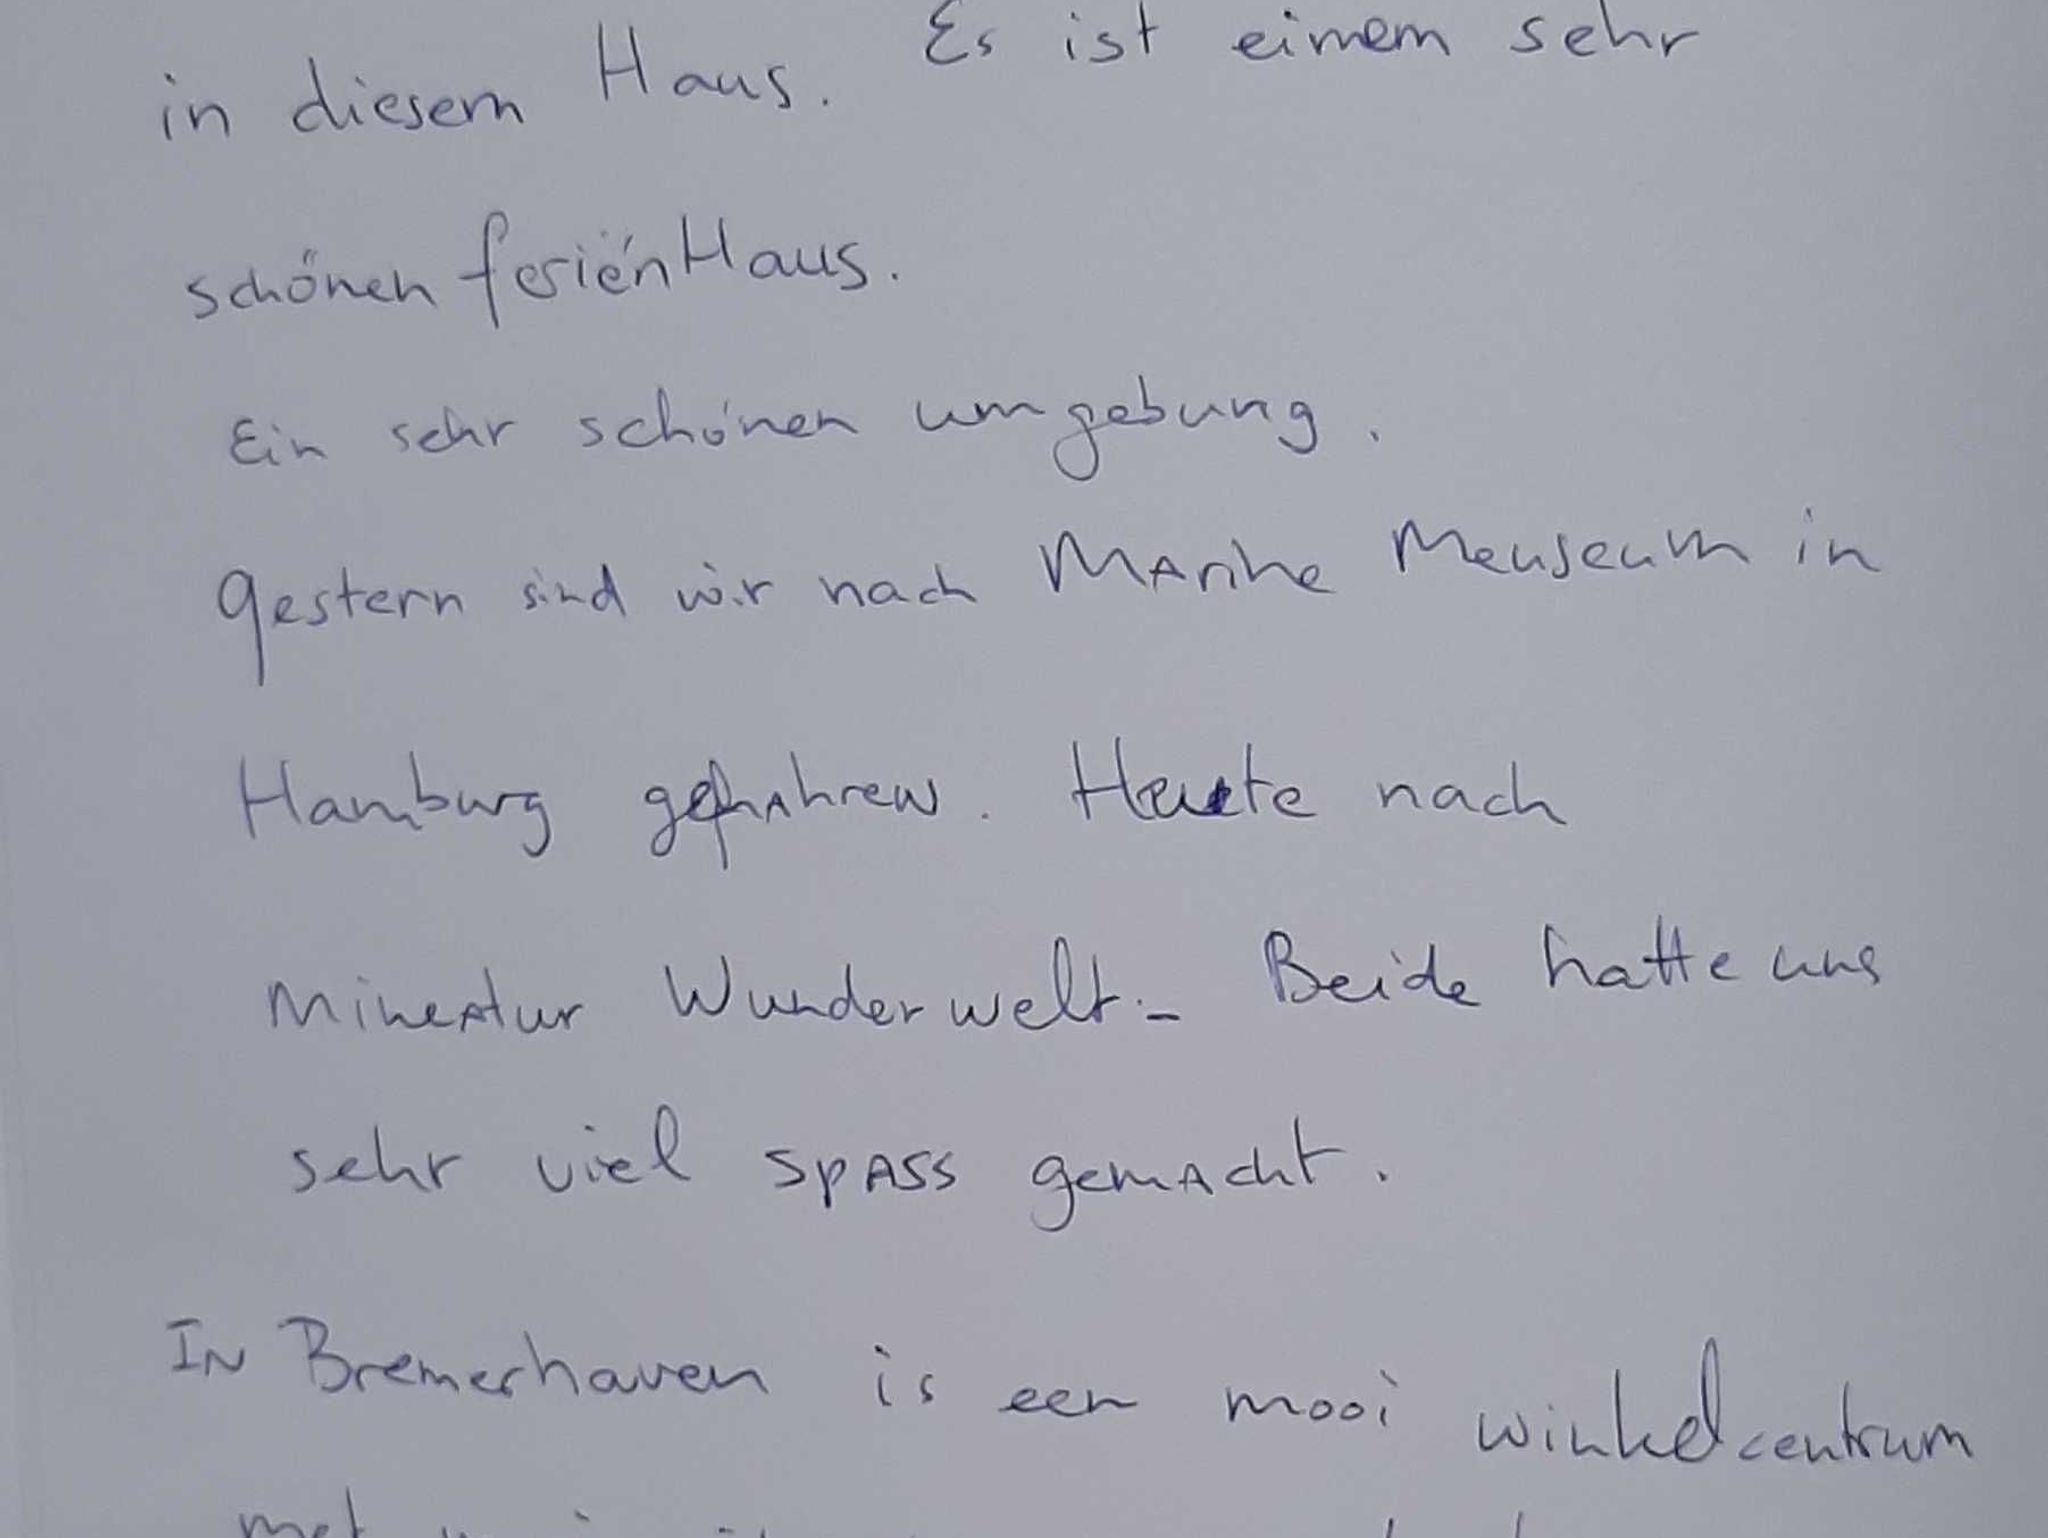 in diesem Haus. Es ist einem sehr
schönen feriënHaus.
Ein sehr schönen umgebung.
gestern sind wir nach MArine Meuseum in
Hamburg gefahren. Heute nach
MineAtur Wunderwelt. - Beide hatte uns
sehr viel spASS gemAcht.
IN Bremerhaven is een mooi winkelcentrum
met